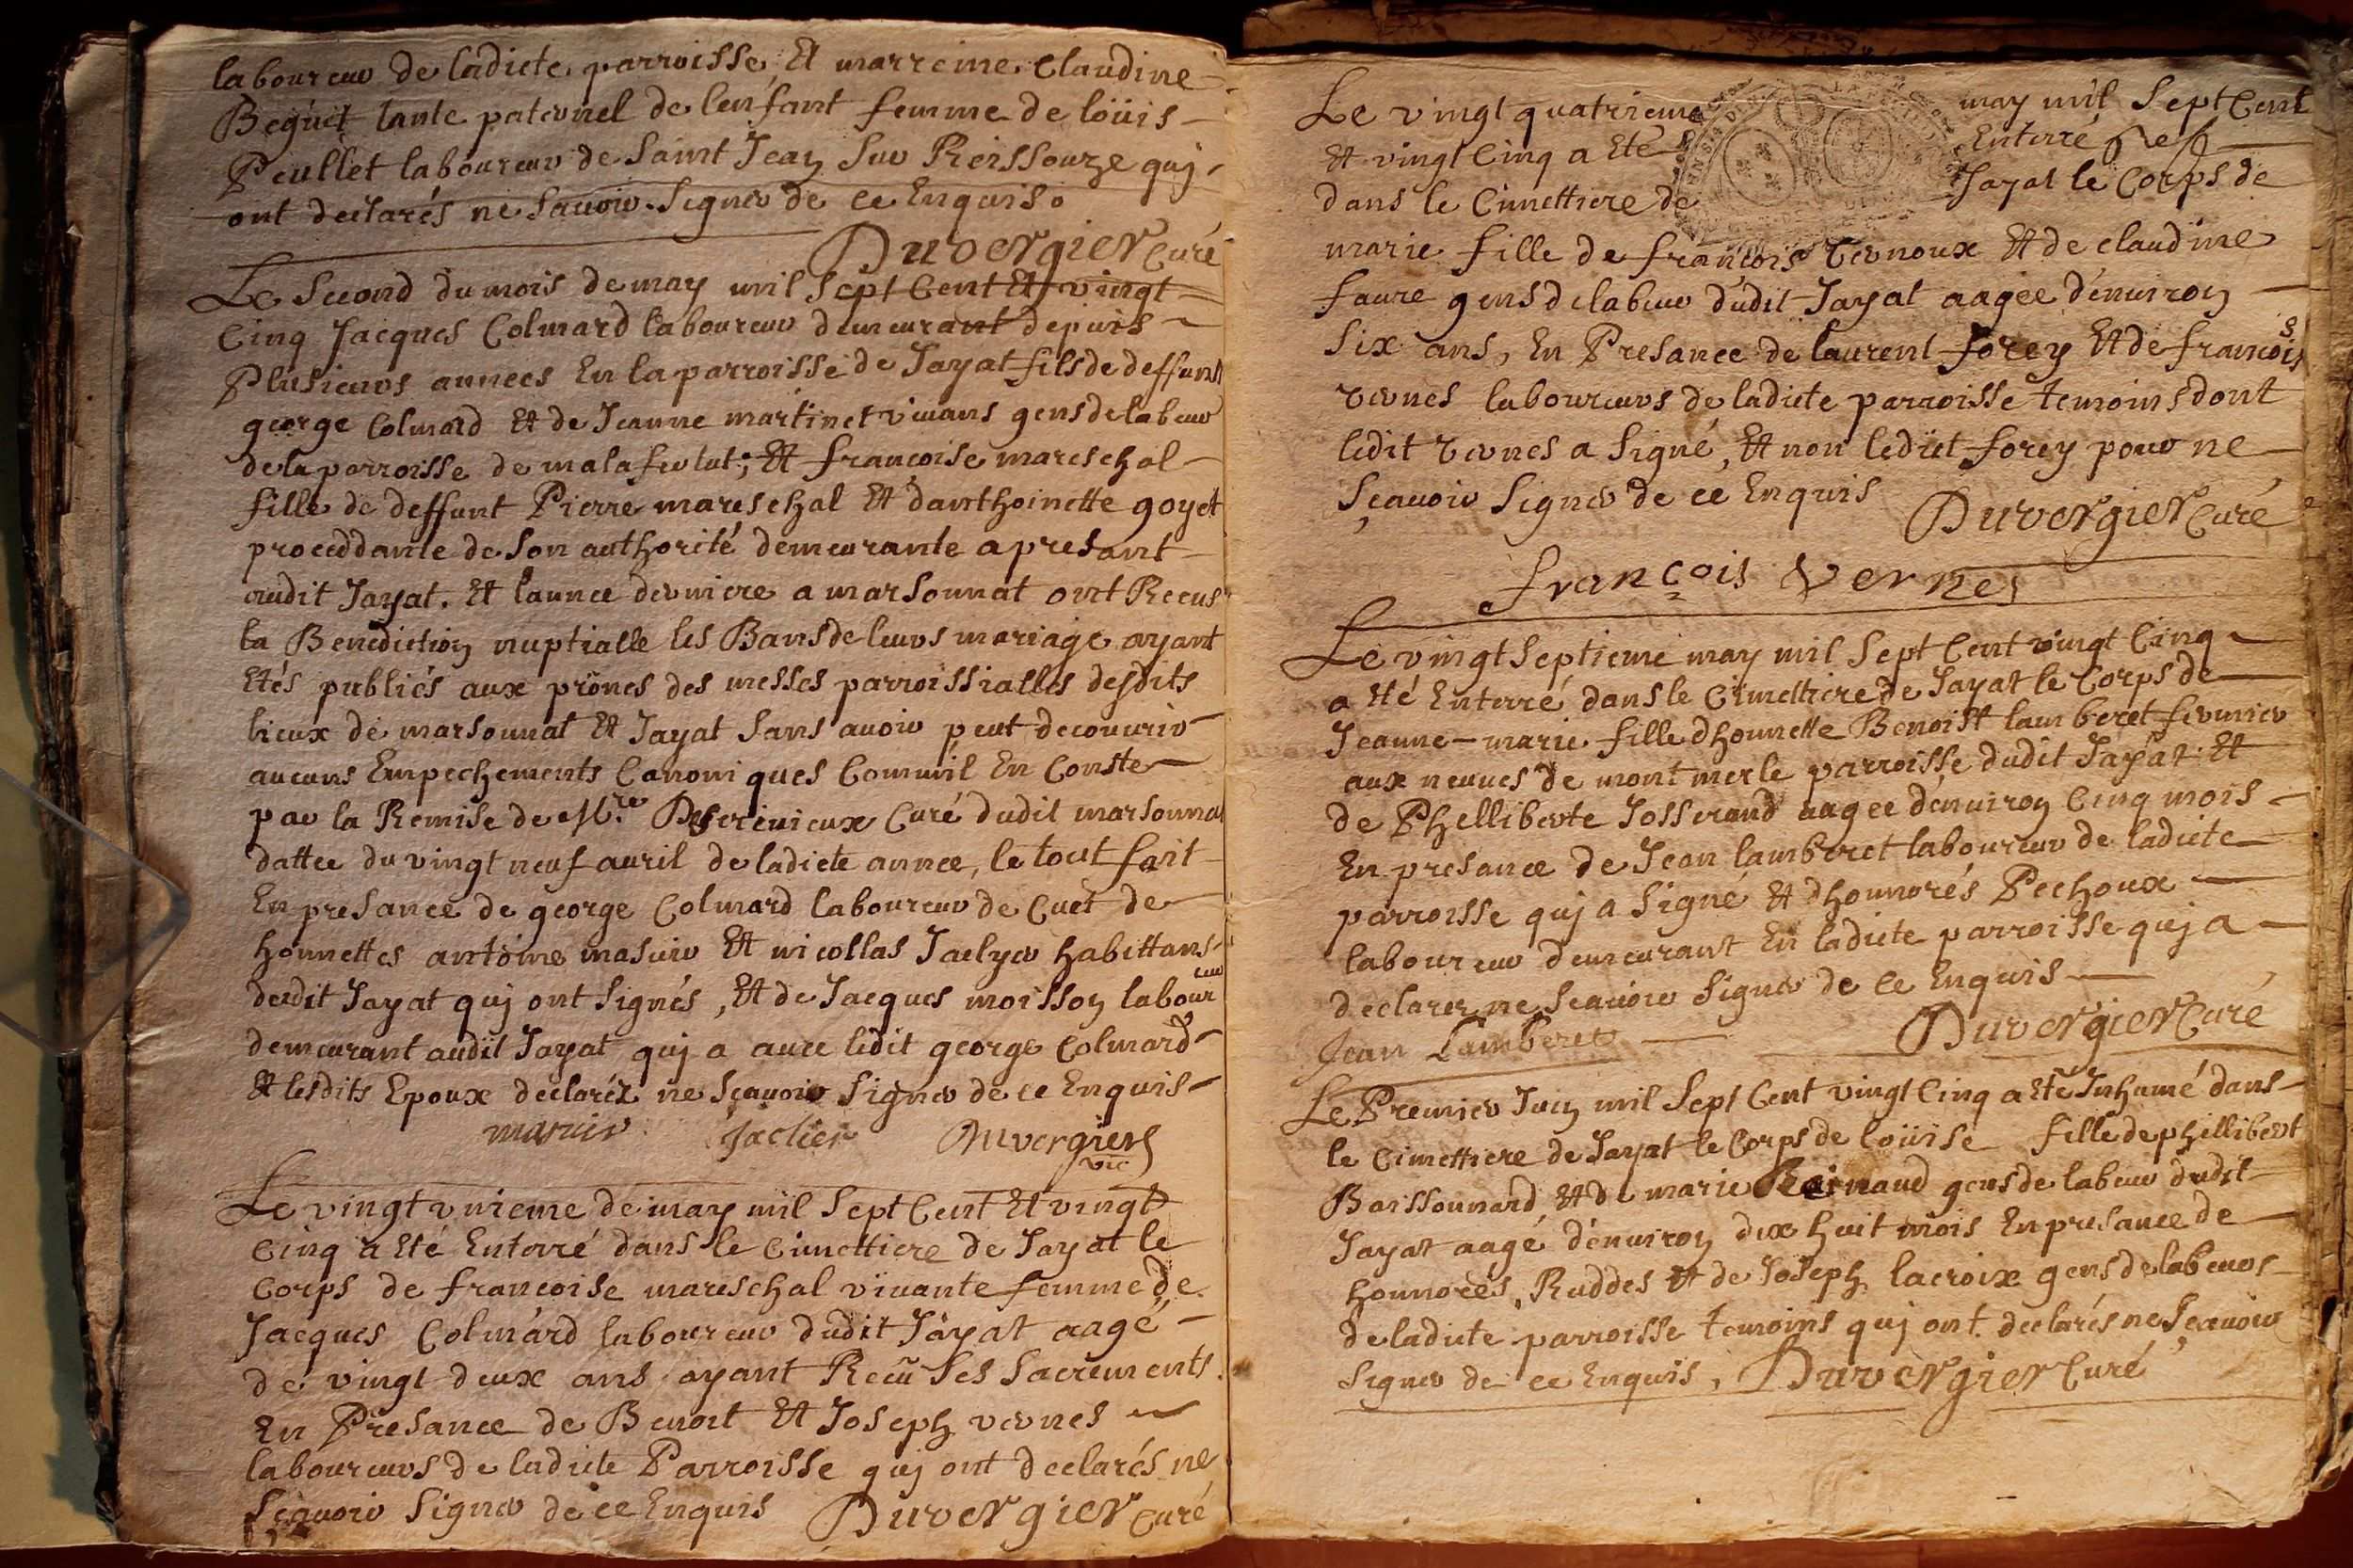 laboureur de ladicte parroisse Et marreine Claudine
Beguet tante paternel de lenfant femme de loüis
Peullet laboureur de Saint Jean Sur Reissouze quj
ont declarés ne Savoir Signer de ce Enquis.
Duvergier Curé
Le Second du mois de may mil Sept Cent Et vingt
Cinq Jacques Colmard laboureur demeurant depuis
Plusieurs années En la parroisse de Jayat fils de deffunt
george Colmard Et de Jeanne martinet vivans gens de labeur
de la parroisse de malafertat; Et françoise mareschal
fille de deffunt Pierre mareschal Et d'anthoinette goyet
proceddante de Son authorité demeurante apresant
audit Jayat. Et lannee derniere a marsonnat ont Receus
la Benediction nuptialle les Bans de leurs mariage ayant
Etés publiés aux prônes des messes parroissialles desdits
lieux de marsonnat Et Jayat Sans auoir peut decouurir
aucuns Empechements Canoniques Comm'il En Conste
par la Remise de Mre Curé dudit marsonnat
dattee du vingt neuf auril de ladicte annee, le tout fait
En presance de george Colmard laboureur de Cuet de
honnettes antoine masuir Et nicollas Jaelyer habittans
dudit Jayat quj ont Signés, Et de Jacques moisson laboureur
demeurant audit Jayat quj a avec ledit george Colmard
Et lesdits Epoux declaréz ne Sçauoir Signer de ce Enquis
masuir Jaclier Duvergier
vic
Le vingt vnieme de may mil Sept Cent Et vingt
Cinq a Eté Enterré dans le Cimettiere de Jayat le
Corps de francoise mareschal viuante femme de
Jacques Colmard laboureur dudit Jayat aagé
de vingt deux ans ayant Recû Ses Sacrements
En Presance de Benoit Et Joseph vernes
laboureurs de ladicte Parroisse quj ont declarés ne
Sçauoir Signer de ce Enquis Duvergier Curé
Le vingt quatrieme may mil Sept Cent
Et vingt Cinq a Eté Enterré
dans le Cimettiere de Jayat le Corps de
marie fille de françois vernoux Et de claudine
faure gens de labeur dudit Jayat aagée d'enuiron
Six ans, En Presance de laurent forey Et de francois
vernes laboureurs de ladicte parroisse temoins dont
ledit vernes a Signé, Et non ledict forey pour ne
Sçauoir Signer de ce Enquis Duvergier Curé
françois Vernes
Le vingt Septieme may mil Sept Cent vingt Cinq
a Eté Enterré dans le Cimettiere de Jayat le Corps de
Jeanne-marie fille dhonnette Benoist lamberet fermier
aux neuues de montmerle parroisse dudit Jayat Et
de Phelliberte Josserand aagee d'enuiron Cinq mois
En presance de Jean lamberet laboureur de ladicte
parroisse quj a Signé Et dhonnorés Pechoux
laboureur demeurant En ladicte parroisse quj a
declarez ne Sçauoir Signer de ce Enquis
Duvergier Curé
Jean Lamberet
Le Premier Juin mil Sept Cent vingt Cinq a Eté Inhumé dans
le Cimettiere de Jayat le Corps de loüise fille de phillibert
Boissonnard, Et de marie Reinaud gens de labeur dudit
Jayat aagé d'enuiron dix huit mois En presance de
honnorés Ruddes Et de Joseph lacroix gens de labeurs
de ladicte parroisse temoins quj ont declarés ne Sçauoir
Signer de ce Enquis, Duvergier Curé